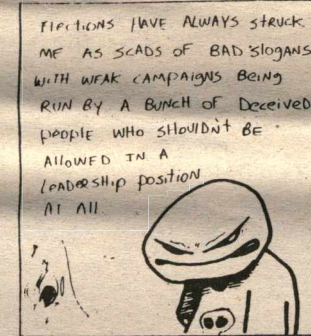 ELECTIONS HAVE ALWAYS STRUCK
ME AS SCADS OF BAD SLOGANS
WITH WEAK CAMPAIGNS BEING
RUN BY A BUNCH OF DECEIVED
PEOPLE WHO SHOULDN'T BE
ALLOWED IN A
LEADERSHIP POSITION
AT ALL